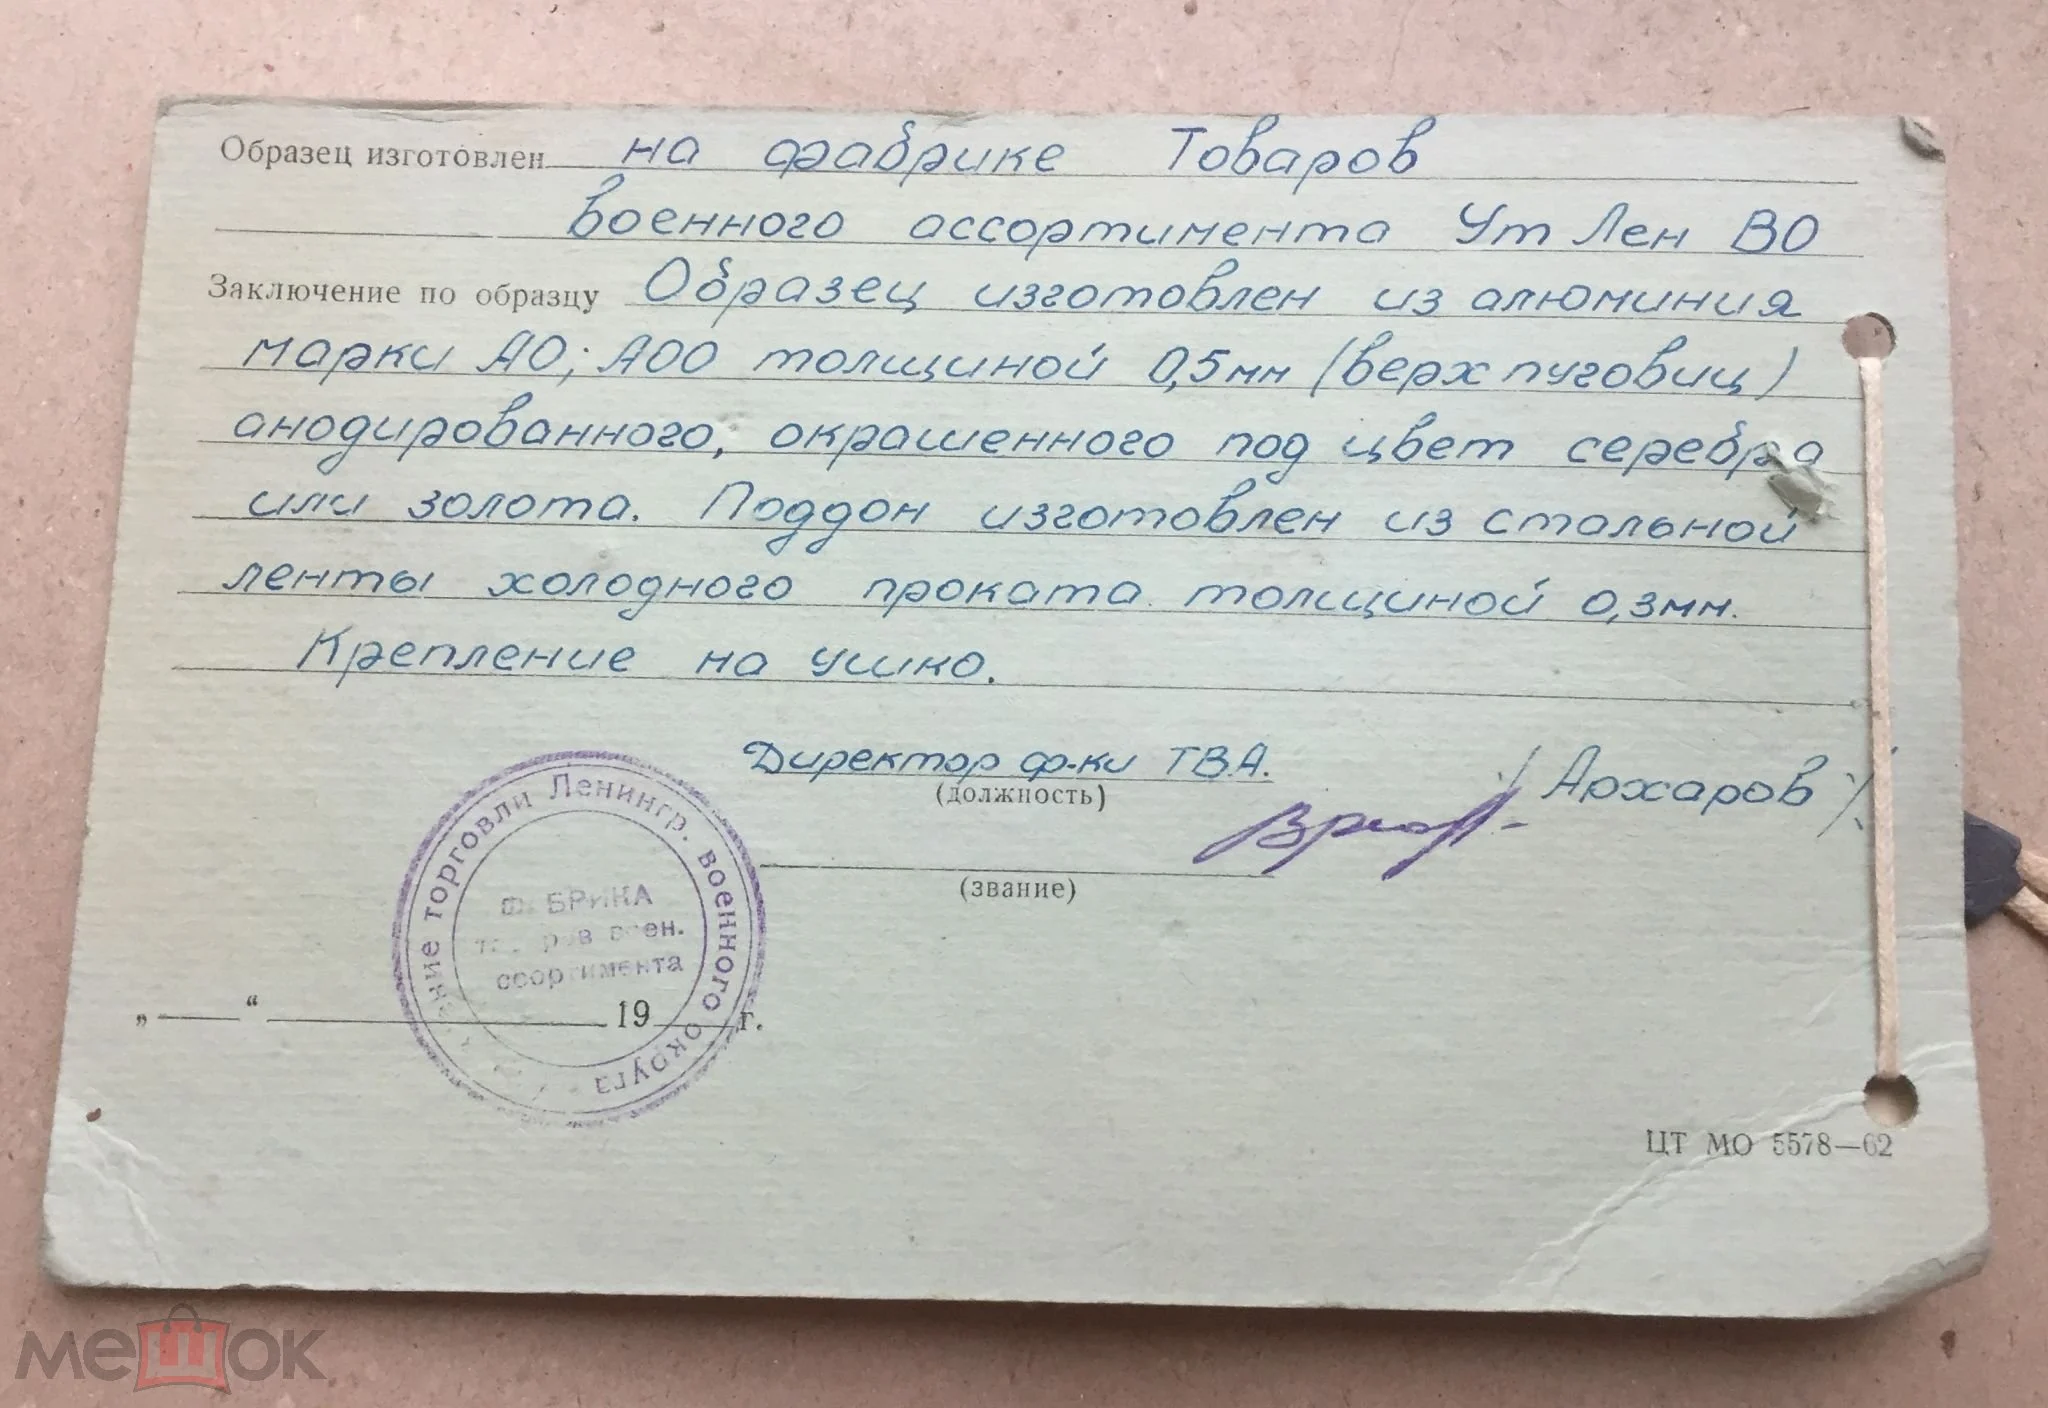 Образец изготовлен на фабрике Товаров
военного ассортимента Ут Лен ВО
Заключение по образцу Образец изготовлен из алюминия
марки А0; А00 толщиной 0,5мм (верх пуговиц)
анодированного, окрашенного под цвет серебра
или золота. Поддон изготовлен из стальной
ленты холодного проката толщиной 0,3мм.
Крепление на ушко.
Директор ф-ки ТВА.
(должность)
/Архаров/
(звание)
торговли Ленингр. военного округа
ФАБРИКА
товаров воен.
ссортимента
„ “ 19 г.
ЦТ МО 5578—62
мешок